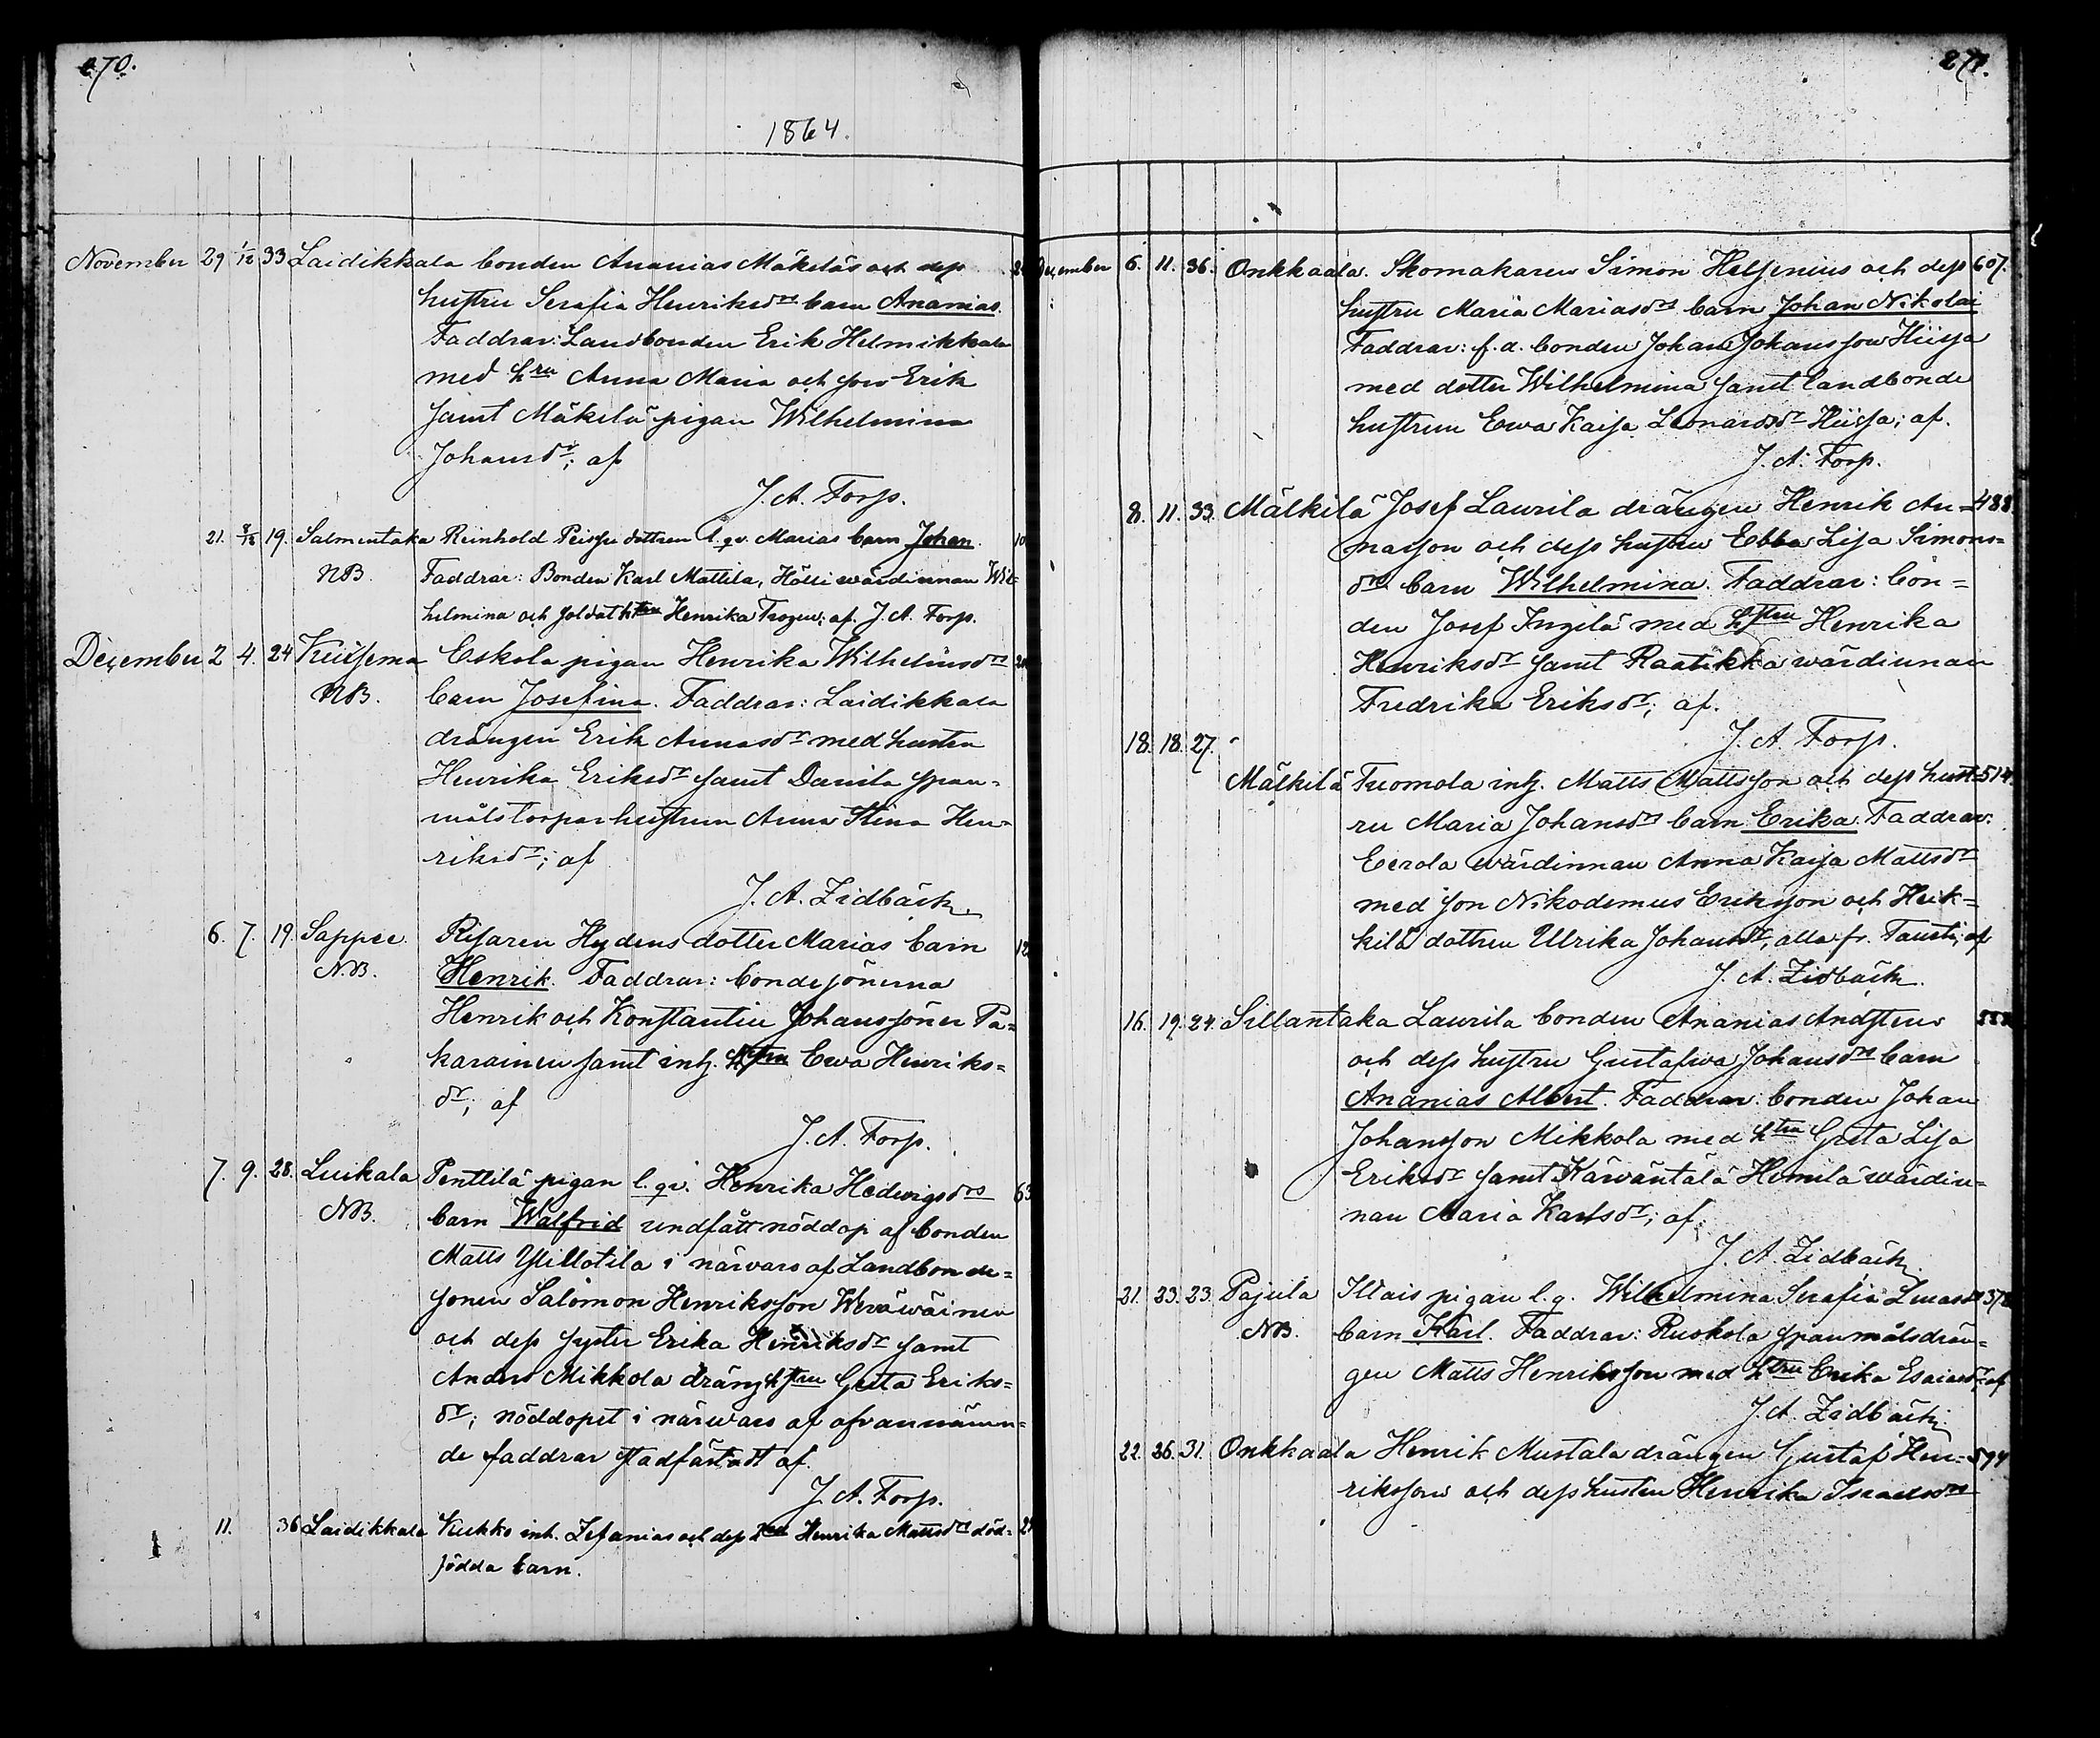 270.
1864.
November 29 1/12 33 Laidikkala bonden Ananias Mäkeläs och dess
hustru Serafia Henriksdrs barn Ananias.
Faddrar: Landbonden Erik Helmikkala
med hru Anna Maria och son Erik
samt Mäkelä pigan Wilhelmina
Johansdr; af
J. A. Forss.
21. 8/12 19. Salmentaka Reinhold Peissu dottren l. qv. Marias barn Johan. 10
NB. Faddrar: Bonden Karl Mattila, Hölli wärdinnan Wil=
helmina och soldat htru Henrika Trogen; af J. A. Forss.
December 2 4. 24 Kuisema Eskola pigan Henrika Wilhelmsdrs
NB. barn Josefina. Faddrar: Laidikkala
drängen Erik Annasdr med hustru
Henrika Eriksdr samt Danila span=
målstorpar hustrun Anna Stina Hen=
riksdr; af
J. A. Zidbäck.
6. 7. 19. Sappee. Risaren Hydens dotter Marias barn 12
N.B. Henrik. Faddrar: bondesönerna
Henrik och Konstantin Johanssöner Pa=
karainen samt inh. hstru Ewa Henriks=
dr; af
J. A. Forss.
7. 9. 28. Luikala Penttilä pigan l. qv. Henrika Hedvigsdrs 63
NB. barn Walfrid undfått nöddop af bonden
Matts Ylillotila i närvaro af Landbonde=
sonen Salomon Henriksson Weräwäinen
och dess syster Erika Henriksdr samt
Anders Mikkola dräng hstru Greta Eriks=
dr; nöddopet i närwaro af ofvannämn=
de faddrar stadfästadt af.
J. A. Forss.
11. 36 Laidikkala Kukko inh. Zefanias och dess hru Henrika Mattsdrs död=
födda barn.
271.
December 6. 11. 36. Onkkaala. Skomakaren Simon Helsenius och dess 607.
hustru Maria Mariasdrs barn Johan Nikolai
Faddrar: f. d. bonden Johan Johansson Hiisja
med dotter Wilhelmina samt landbonde
hustrun Ewa Kaisa Leonardsdr Hiisja; af.
J. A. Forss.
8. 11. 33. Mälkilä Josef Laurila drängen Henrik An= 488
nasson och dess hustru Ebba Lisa Simons=
drs barn Wilhelmina. Faddrar: bon=
den Josef Ingelä med hstru Henrika
Henriksdr samt Raatikka wärdinnan
Fredrika Eriksdr; af.
18. 18. 27. J. A. Forss.
Mälkilä Tuomola inh. Matts Mattsson och dess hust= 514
ru Maria Johansdrs barn Erika. Faddrar:
Eerola wärdinnan Anna Kaisa Mattsdr
med son Nikodemus Eriksson och Heik=
kilä dottren Ulrika Johansdr, alla fr. Tausti; af
J. A. Zidbäck.
16. 19. 24. Sillantaka Laurila bonden Ananias Andstens
och dess hustru Gustafwa Johansdrs barn
Ananias Albert. Faddrar: bonden Johan
Johansson Mikkola med htru Greta Lisa
Eriksdr samt Kärwäntälä Homilä wärdin=
nan Maria Karlsdr; af.
J. A. Zidbäck.
21. 23. 23. Pajula Illais pigan l. q. Wilhelmina Serafia Lucasdrs
NB. barn Karl. Faddrar: Ruokola spanmålsdrän=
gen Matts Henriksson med htru Erika Esaiasdr; af
J. A. Zidbäck.
22. 26. 31. Onkkaala Henrik Mustala drängen Gustaf Hen= 594
riksson och dess hustru Henrika Israelsdrs